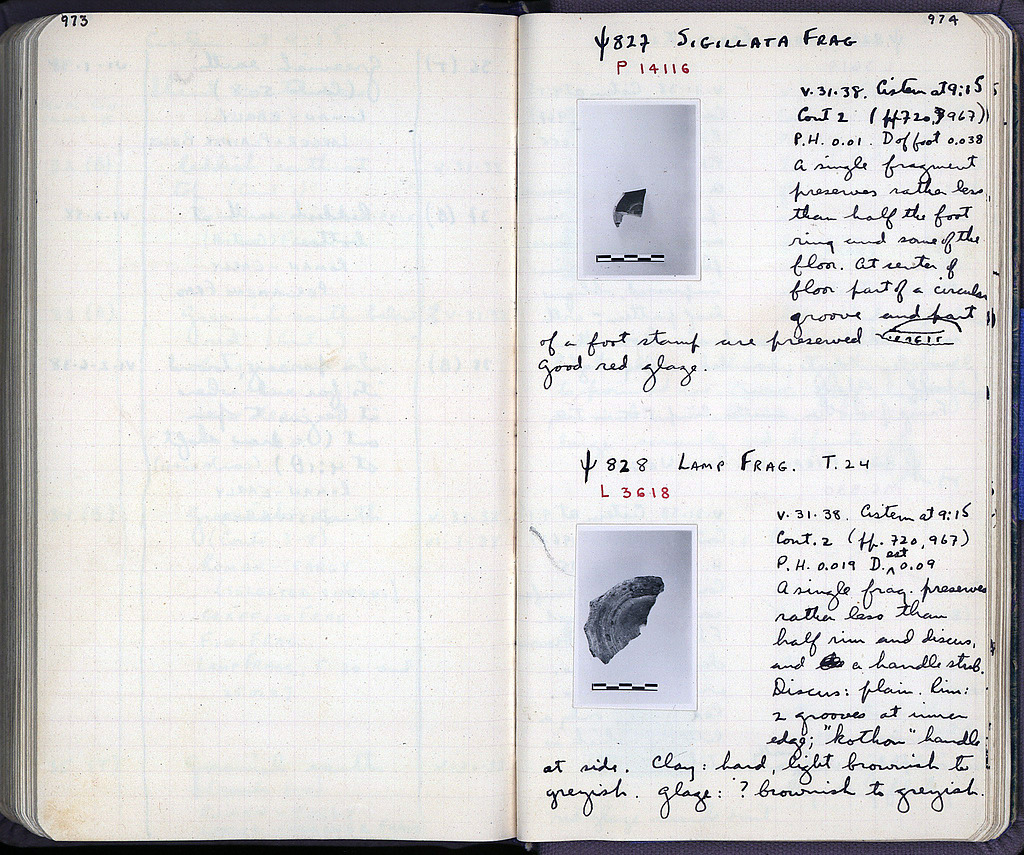 973
974
ψ 827 SIGILLATA FRAG
P 14116
V.31.38. Cistern at 9:15
Cont 2 (ff 720, 967)
P.H. 0.01. D of foot 0.038
A single fragment
preserves rather less
than half the foot
ring and some of the
floor. At center of
floor part of a circular
groove and part
of a foot stamp are preserved
Good red glaze.
ψ 828 LAMP FRAG. T.24
L 3618
V.31.38. Cistern at 9:15
Cont. 2 (ff. 720, 967)
P.H. 0.019 D. est 0.09
A single frag. preserves
rather less than
half rim and discus,
and a handle stub.
Discus: plain. Rim:
2 grooves at inner
edge; "kothon" handle
at side. Clay: hard, light brownish to
greyish. Glaze: ? brownish to greyish.